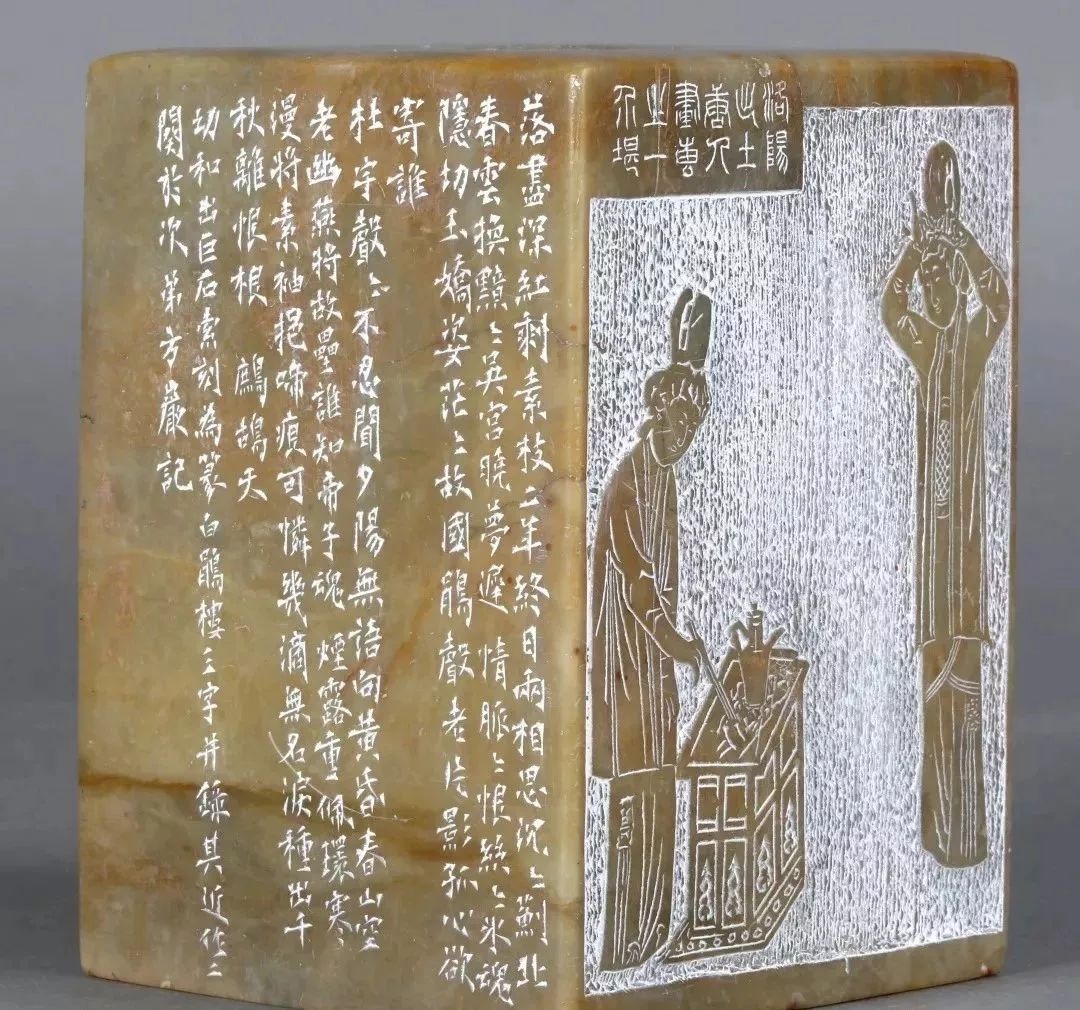 洛陽
出土
唐人
畫專
之一
介堪
落盡深紅剩素枝二年終日兩相思沉〻薊北
春雲換黯〻吳宮晚夢遲 情脈〻恨絲〻冰魂
隱切玉嬌姿茫〻故國鵑聲老片影孤心欲
寄誰
杜宇聲〻不忍聞夕陽無語向黃昏春山空
老幽燕將故壘誰知帝子魂 煙露重佩環寒
漫將素袖挹啼痕可憐幾滴無名淚種出千
秋離恨根 鷓鴣天
劫和出巨石索刻為篆白鵑樓三字并錄其近作二
闋於次第方巖記